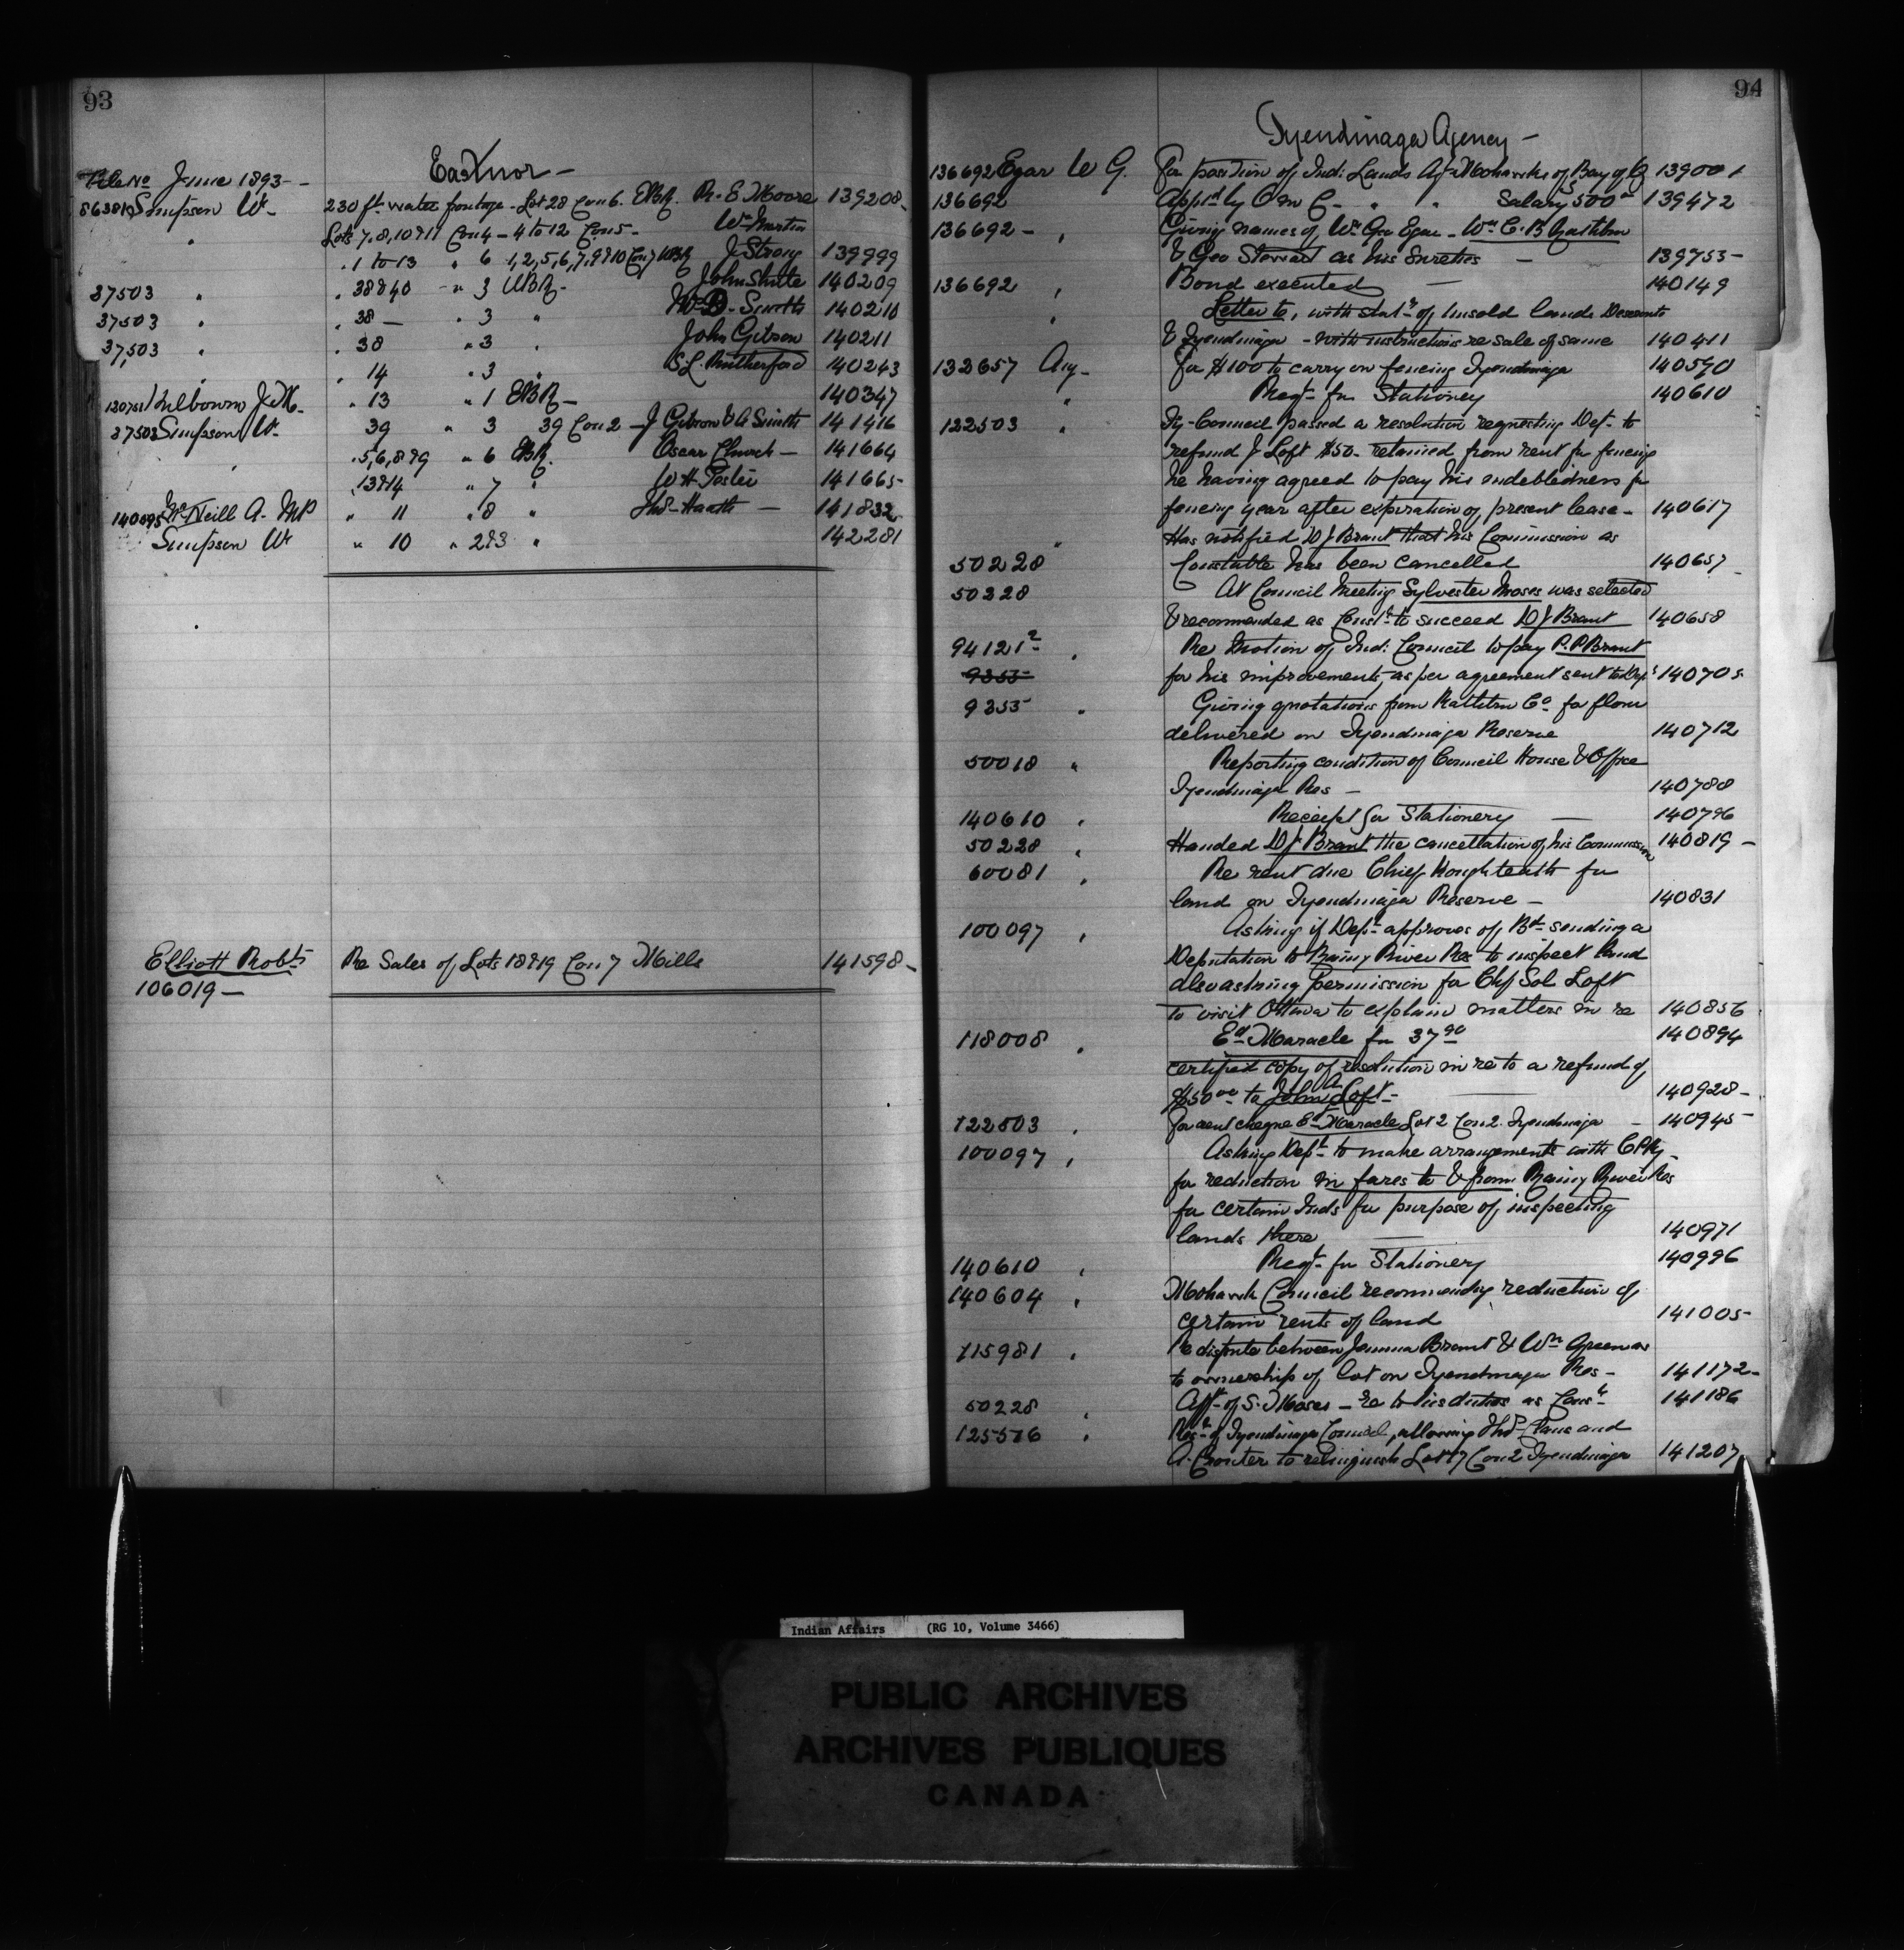 93
Eastnor -
File No June 1893 -
86381 Simpson Wm 230 ft. water frontage - Lot 28 Con 6. EBR. R. E Moore 139208 -
" Lots 7, 8, 10 & 11 Con 4 - 4 to 12 Con 5 - Wm Martin
" 1 to 13 " 6 1, 2, 5, 6, 7, 9 & 10 Con 7 WBR J Strong 139999
37503 " " 38 & 40 " 3 WBR - John Shute 140209
37503 " " 38 - " 3 " Wm B. Smith 140210
37,503 " " 38 " 3 " John Gibson 140211
" " 14 " 3 " S. L. Rutherford 140243
J. M. " 13 " 1 EBR - 140347
37503 Simpson Wm 39 " 3 39 Con 2 - J Gibson & A Smith 141416
" 5, 6, 8 & 9 " 6 EBR. Oscar Church - 141664
" 13 & 14 " 7 " W H 141665 -
140095 McNeill A. MP " 11 " 8 " Thos Heath - 141832
Simpson Wm " 10 " 2 & 3 " 142281
Elliott Robt Re Sales of Lots 18 & 19 Con 7 Mills 141598 -
106019 -
94
Tyendinaga Agency -
136692 Egar W G. For position of Ind: Lands Agt Mohawks of Bay of Q 139001
136692 Appd by O in C - " " Salary $500 139472
136692 - " Giving names of Wm Geo Egar - Wm C. B Rathbun
& Geo Stewart as his Sureties - 139753 -
136692 " Bond executed - 140149
" Letter to, with statmt of unsold lands Deseronto
& Tyendinaga - with instructions re sale of same 140411
132657 Agt - For $100 to carry on fencing Tyendinaga 140590
" Reqt for Stationery 140610
122503 " Ty - Council passed a resolution requesting Dept to
refund J Loft $50 - retained from rent for fencing
he having agreed to pay his indebtedness for
fencing year after expiration of present lease - 140617
" Has notified D J Brant that his Commission as
50228 Constable has been cancelled 140657 -
50228 At Council Meeting Sylvester Moses was selected
& recommended as Const to succeed D J Brant 140658
94121-2 " Re Motion of Ind: Council to pay P. P Brant
9355 for his improvements, as per agreement sent to Dept 140705
9355 " Giving quotations from Rathbun Co for flour
delivered on Tyendinaga Reserve 140712
50018 " Reporting condition of Council House & Office
Tyendinaga Res - 140788
140610 " Receipt for Stationery - 140796
50228 " Handed D J Brant the cancellation of his Commission 140819 -
60081 " Re rent due Chief for
land on Tyendinaga Reserve - 140831
100097 " Asking if Dept approves of Bd sending a
Deputation to Rainy River Res to inspect land
also asking permission for Chf Sol Loft
to visit Ottawa to explain matters in re 140856
118008 " Ed Maracle for 37 90 140894
certified copy of resolution in re to a refund of
$50 00 to John A Loft - 140928 -
122503 " For rent cheque Ed Maracle Lot 2 Con 2. Tyendinaga - 140945 -
100097 " Asking Dept to make arrangements with CPRy -
for reduction in fares to & from Rainy River Res
for certain Inds for purpose of inspecting
lands there 140971
140610 " Reqt for Stationery 140996
140604 " Mohawk Council recommending reduction of
certain rents of land 141005 -
115981 " Re dispute between Jemima Brant & Wm Green as
to ownership of lot on Tyendinaga Res - 141172 -
50228 " Afft of S. Moses - re to his duties as Const 141186
125576 " Resn of Tyendinaga Council, allowing Thos Claus and
A. to relinquish Lot 17 Con 2 Tyendinaga 141207
Indian Affairs (RG 10, Volume 3466)
PUBLIC ARCHIVES
ARCHIVES PUBLIQUES
CANADA